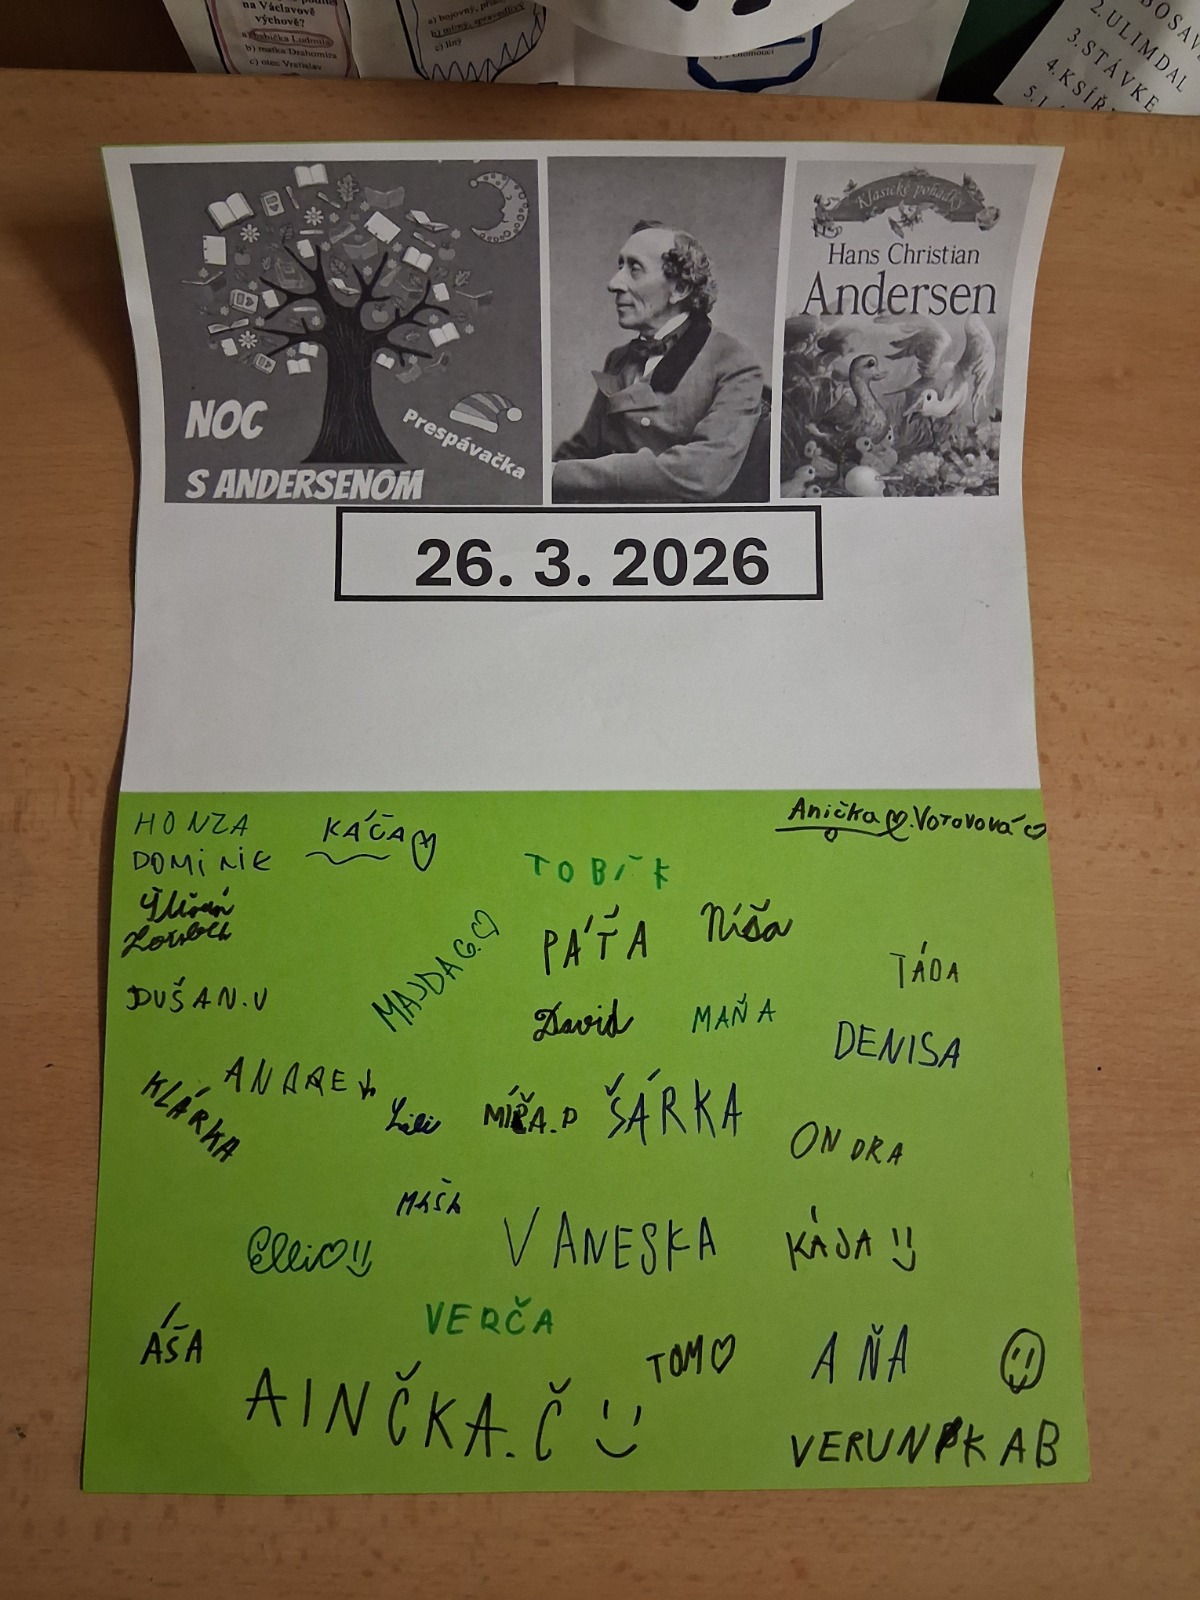 na Václavově
výchově?
a) babička Ludmila
b) matka Drahomíra
c) otec Vratislav
b) mírný, spravedlivý
c) líný
2. ULIMDAL
3. STÁVKE
NOC
S ANDERSENOM
Prespávačka
Klasické pohádky
Hans Christian
Andersen
26. 3. 2026
HONZA
KÁČA
Anička Votavová
DOMINIK
TOBÍK
PÁŤA
Níša
MAJDA G.
TÁDA
DUŠAN.V
David
MAŇA
DENISA
KLÁRKA
Lili
MÍŘA.P
ŠÁRKA
ONDRA
Elli
VANESKA
KÁJA
VERČA
ÁŠA
TOM
AŇA
AINČKA.Č
VERUNKAB